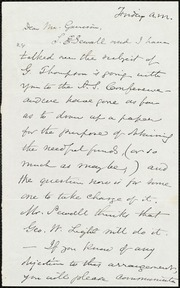 Friday a.m.
Dear Mr Garrison,
S. E. Sewall and I have
talked over the subject of
G. Thompson's going with
you to the A. S. Conference
and we have gone so far
as to draw up a paper
for the purpose of obtaining
the needful funds (or so
much as may be,) and
the question now is for some
one to take charge of it.
Mr. Sewall thinks that
Geo. W. Light will do it.
— If you know of any
objection to this arrangement,
you will please communicate